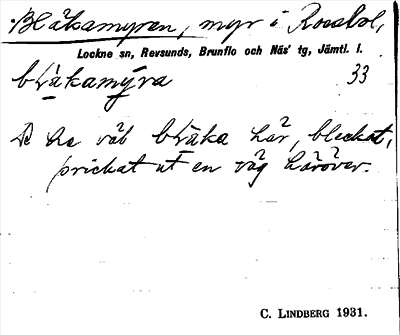 Blåkamyren, myr i Rossbol,
Lockne sn, Revsunds, Brunflo och Näs' tg, Jämtl. l.
blä̀kamýra 33
De ha väl bläka här, bleckat,
prickat ut en väg häröver.
C. LINDBERG 1931.